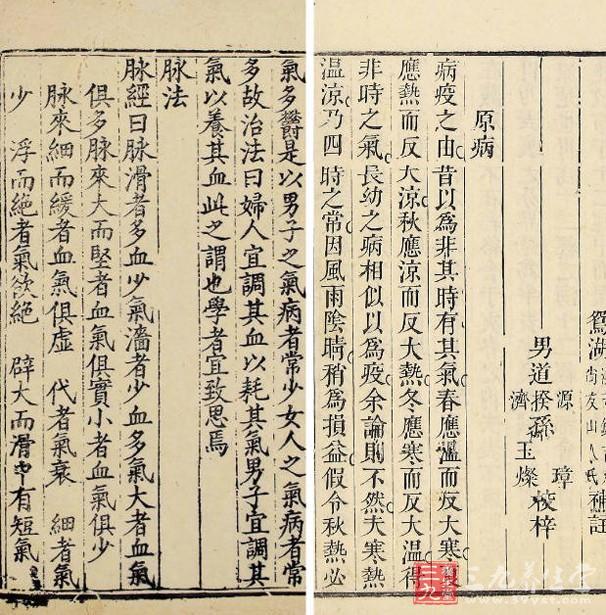 鴛湖
男道揆孫 源 璋 濟 玉燦 校梓
原病
病疫之由昔以爲非其時有其氣春應溫而反大寒
應熱而反大涼秋應涼而反大熱冬應寒而反大温得
非時之氣長幼之病相似以爲疫余論則不然夫寒熱
温涼乃四時之常因風雨陰晴稍爲損益假令秋熱必
氣多鬱是以男子之氣病者常少女人之氣病者常
多故治法曰婦人宜調其血以耗其氣男子宜調其
氣以養其血此之謂也學者宜致思焉
脉法
脉經曰脉滑者多血少氣濇者少血多氣大者血氣
俱多脉來大而堅者血氣俱實小者血氣俱少
脉來細而緩者血氣俱虚 代者氣衰 細者氣
少 浮而絕者氣欲絕 辟大而滑中有短氣
三九养生堂